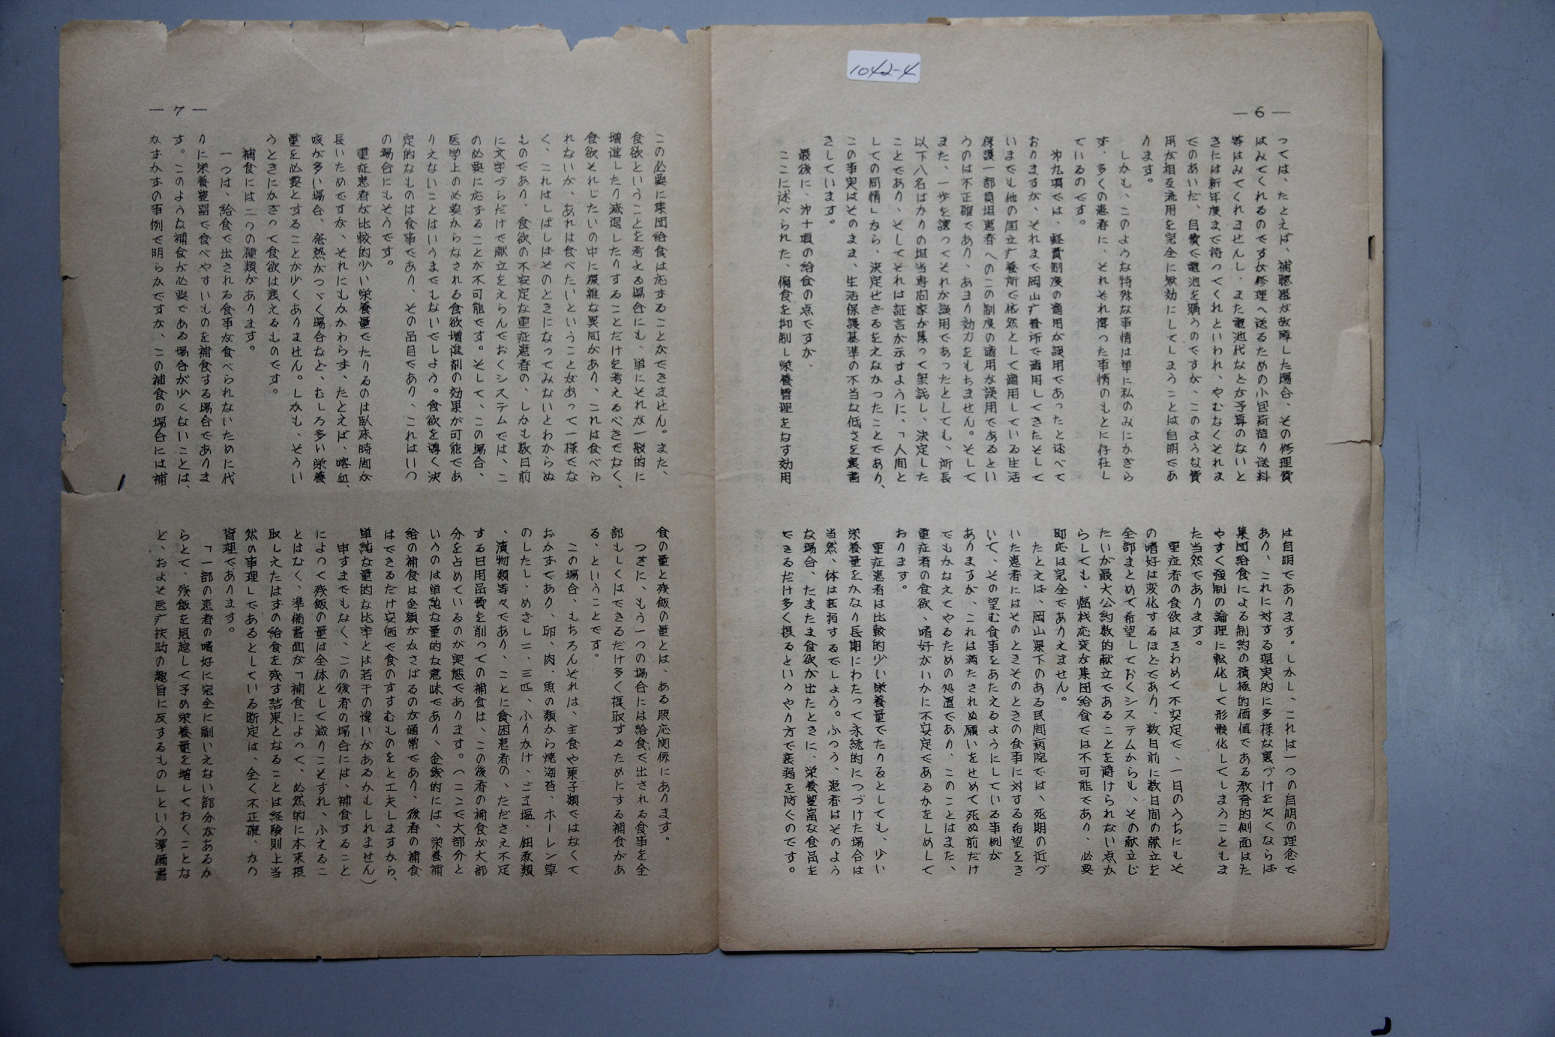 1042-4
— 6 —
っては、たとえば、補聴器が故障した場合、その修理費
はみてくれるのですが修理へ送るための小包荷造り送料
等はみてくれませんし、また電池代などが予算のないと
きには新年度まで待ってくれといわれ、やむなくそれま
でのあいだ、自費で電池を購うのですが、このような費
用が相互流用を完全に無効にしてしまうことは自明であ
ります。
しかも、このような特殊な事情は単に私のみにかぎら
ず、多くの患者に、それぞれ違った事情のもとに存在し
ているのです。
第九項では、軽費制度の適用が誤用であったと述べて
おりますが、それまで岡山療養所で適用してきたそして
いまでも他の国立療養所で依然として適用している生活
保護一部負担患者へのこの制度の適用が誤用であるとい
うのは不正確であり、あまり効力をもちません。そして
また、一歩を譲ってそれが誤用であったとしても、所長
以下八名ばかりの担当専門家が集って協議し、決定した
ことであり、そしてそれは証言が示すように、「人間と
しての同情」から、決定せざるをえなかったことであり、
この事実はそのまま、生活保護基準の不当な低さを裏書
きしています。
最後に、第十項の給食の点ですが、
ここに述べられた、偏食を抑制し栄養管理をなす効用
は自明であります。しかし、これは一つの自明の理念で
あり、これに対する現実的に多様な裏づけを欠くならば
集団給食による制約の積極的価値である教育的側面はた
やすく強制の論理に転化して形骸化してしまうこともま
た当然であります。
重症者の食欲はきわめて不安定で、一日のうちにもそ
の嗜好は変化するほどであり、数日前に数日間の献立を
全部まとめて希望しておくシステムからも、その献立じ
たいが最大公約数的献立であることを避けられない点か
らしても、臨機応変が集団給食では不可能であり、必要
即応は完全でありえません。
たとえば、岡山県下のある民間病院では、死期の近づ
いた患者にはそのときそのときの食事に対する希望をき
いて、その望む食事をあたえるようにしている事例が
ありますが、これは満たされぬ願いをせめて死ぬ前だけ
でもかなえてやるための処置であり、このことはまた、
重症者の食欲、嗜好がいかに不安定であるかをしめして
おります。
重症患者は比較的少い栄養量でたりるとしても、少い
栄養量をかなり長期にわたって永続的につづけた場合は
当然、体は衰弱するでしょう。ふつう、患者はそのよう
な場合、たまたま食欲が出たときに、栄養豊富な食品を
できるだけ多く摂るというやり方で衰弱を防ぐのです。
— 7 —
この必要に集団給食は応ずることができません。また、
食欲ということを考える場合にも、単にそれが一般的に
増進したり減退したりすることだけを考えるべきでなく、
食欲それじたいの中に複雑な異同があり、これは食べら
れないが、あれは食べたいということがあって一様でな
く、これはしばしばそのときになってみないとわからぬ
ものであり、食欲の不安定な重症患者の、しかも数日前
に文字づらだけで献立をえらんでおくシステムでは、こ
のめ要に応ずることが不可能です。そして、この場合、
医学上の必要からなされる食欲増進剤の効果が可能であ
りえないことはいうまでもないでしょう。食欲を導く決
定的なものは食事であり、その品目であり、これはいつ
の場合にもそうです。
重症患者が比較的少い栄養量でたりるのは臥床時間が
長いためですが、それにもかかわらず、たとえば、喀血、
咳が多い場合、発熱がつづく場合など、むしろ多い栄養
量を必要とすることが少くありません。しかも、そうい
うときにかぎって食欲は衰えるものです。
補食には二つの種類があります。
一つは、給食で出される食事が食べられないために代
りに栄養豊富で食べやすいものを補食する場合でありま
す。このような補食が必要である場合が少くないことは、
なまなまの事例で明らかですが、この補食の場合には補
食の量と残飯の量とは、ある照応関係にあります。
つぎに、もう一つの場合には給食で出される食事を全
部もしくはできるだけ多く摂取するためにする補食があ
る、ということです。
この場合、もちろんそれは、主食や菓子類ではなくて
おかずであり、卵、肉、魚の類から焼海苔、ホーレン草
のしたし、めざし二、三匹、ふりかけ、ごま塩、佃煮類
、漬物類等々であり、ことに貧困患者の、ただでさえ不足
する日用品費を削っての補食は、この後者の補食が大部
分を占めているのが実態であります。（ここで大部分と
いうのは単純な量的な意味であり、金銭的には、栄養補
給の補食は金額がかさばるのが通常であり、後者の補食
はできるだけ安価で食のすすむものをと工夫しますから、
単純な量的な比率とは若干の違いがあるかもしれません）
申すまでもなく、この後者の場合には、補食すること
によって残飯の量は全体として減りこそすれ、ふえるこ
とはなく、準備書面が「補食によって、必然的に本来摂
取しえたはずの給食を残す結果となることは経験則上当
然の事理」であるとしている断定は、全く不正確、かつ
皆理であります。
「一部の患者の嗜好に完全に副いえない部分があるか
らとて、残飯を見越して予め栄養量を増しておくことな
ど、およそ医療扶助の趣旨に反するもの」という準備書